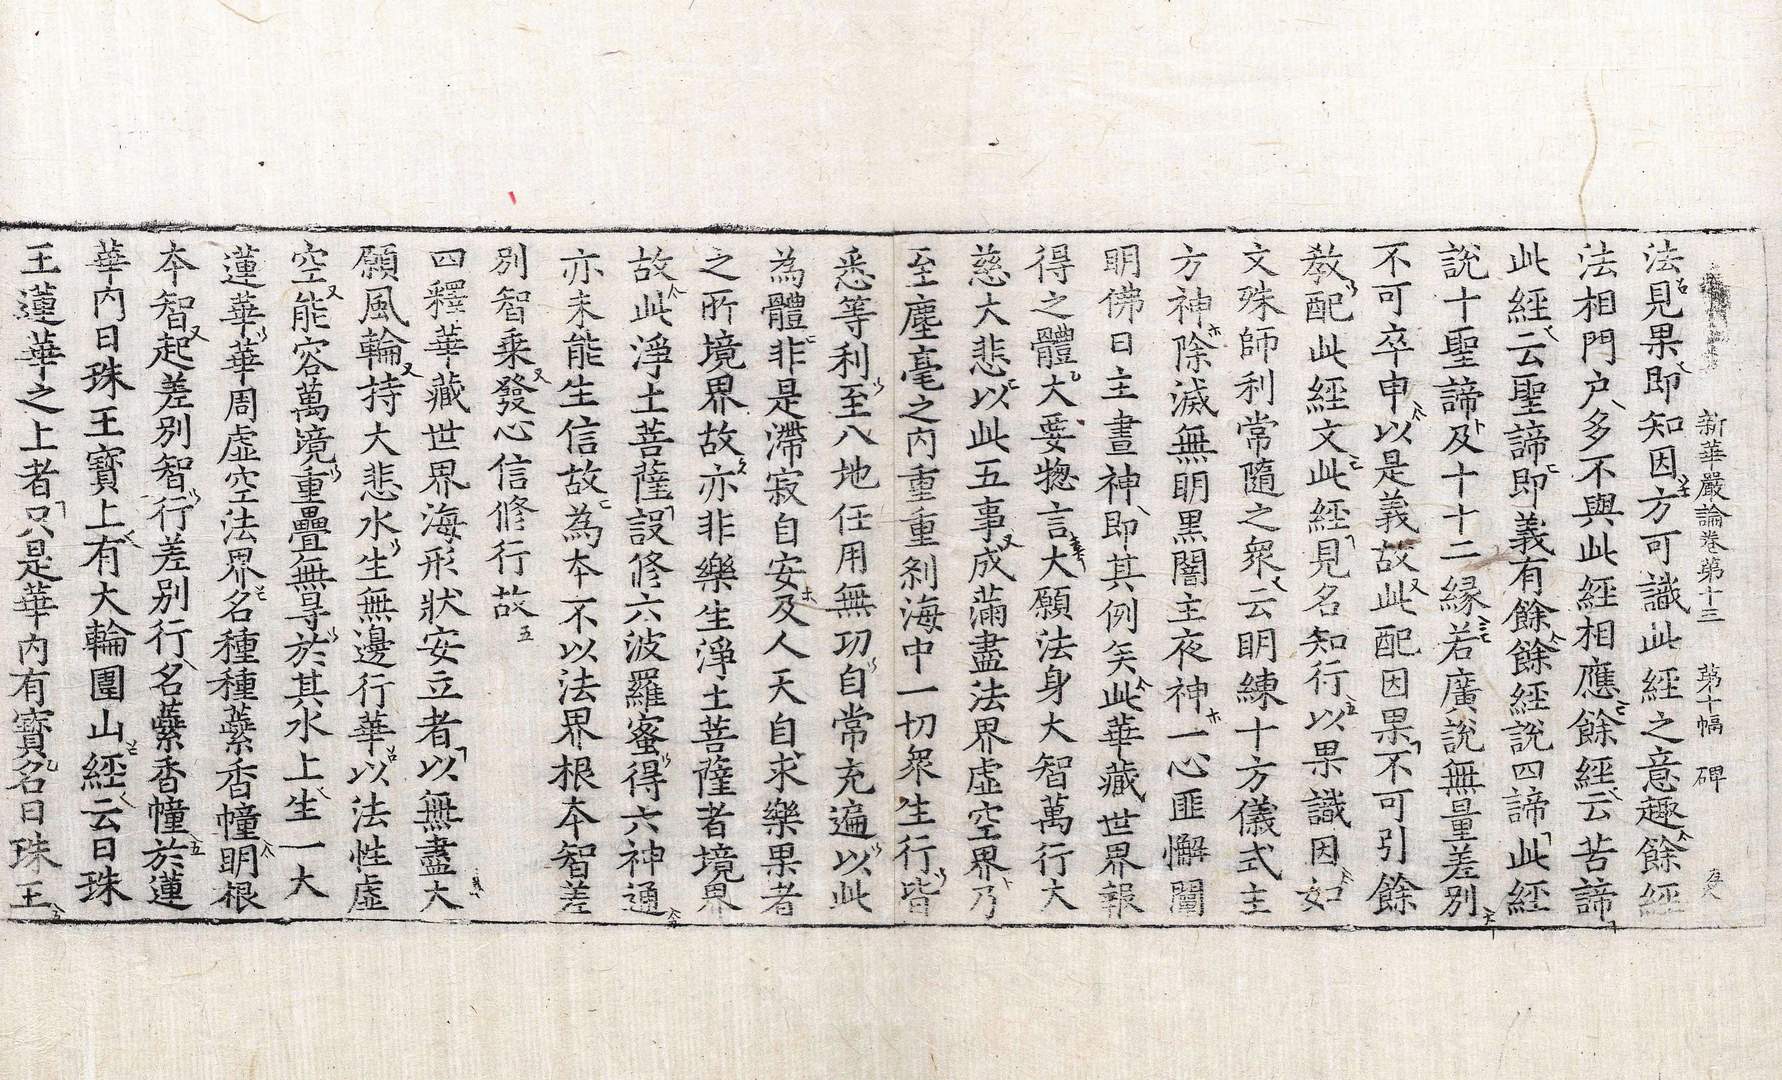 新華嚴論卷第十三 第十幅 碑
法見果即知因方可識此經之意趣餘經
法相門户多不與此經相應餘經云苦諦
此經云聖諦即義有餘餘經說四諦此經
說十聖諦及十十二縁若廣說無量差別
不可卒申以是義故此配因果不可引餘
教配此經文此經見名知行以果識因如
文殊師利常隨之衆云明練十方儀式主
方神除滅無明黑闇主夜神一心匪懈闡
明佛日主晝神即其例矣此華藏世界報
得之體大要惣言大願法身大智萬行大
慈大悲以此五事成滿盡法界虛空界乃
至塵毫之内重重刹海中一切衆生行皆
悉等利至八地任用無功自常充遍以此
為體非是滯寂自安及人天自求樂果者
之所境界故亦非樂生淨土菩薩者境界
故此淨土菩薩設修六波羅蜜得六神通
亦未能生信故為本不以法界根本智差
别智乘發心信修行故
四釋華藏世界海形狀安立者以無盡大
願風輪持大悲水生無邊行華以法性虛
空能容萬境重疊無㝵於其水上生一大
蓮華華周虛空法界名種種蘂香幢明根
本智起差别智行差别行名蘂香幢於蓮
華内日珠王寶上有大輪圍山經云日珠
王蓮華之上者只是華内有寶名日珠王